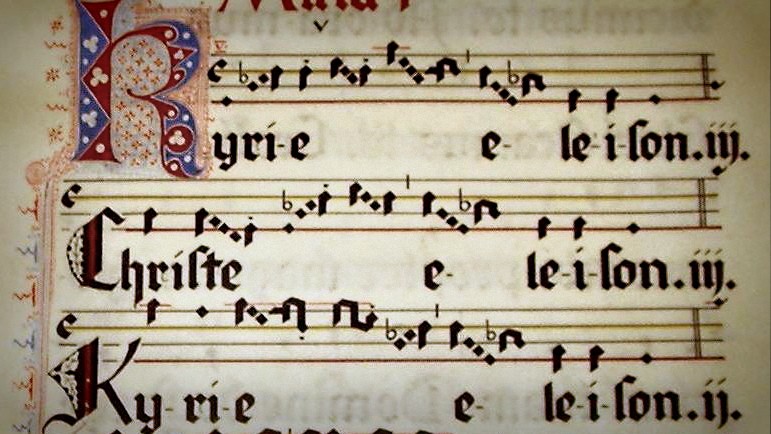 Kyri-e e- le-i-ſon.iij.
Chriſte e- le-i-ſon.iij.
Ky-ri-e e- le-i-ſon.ij.